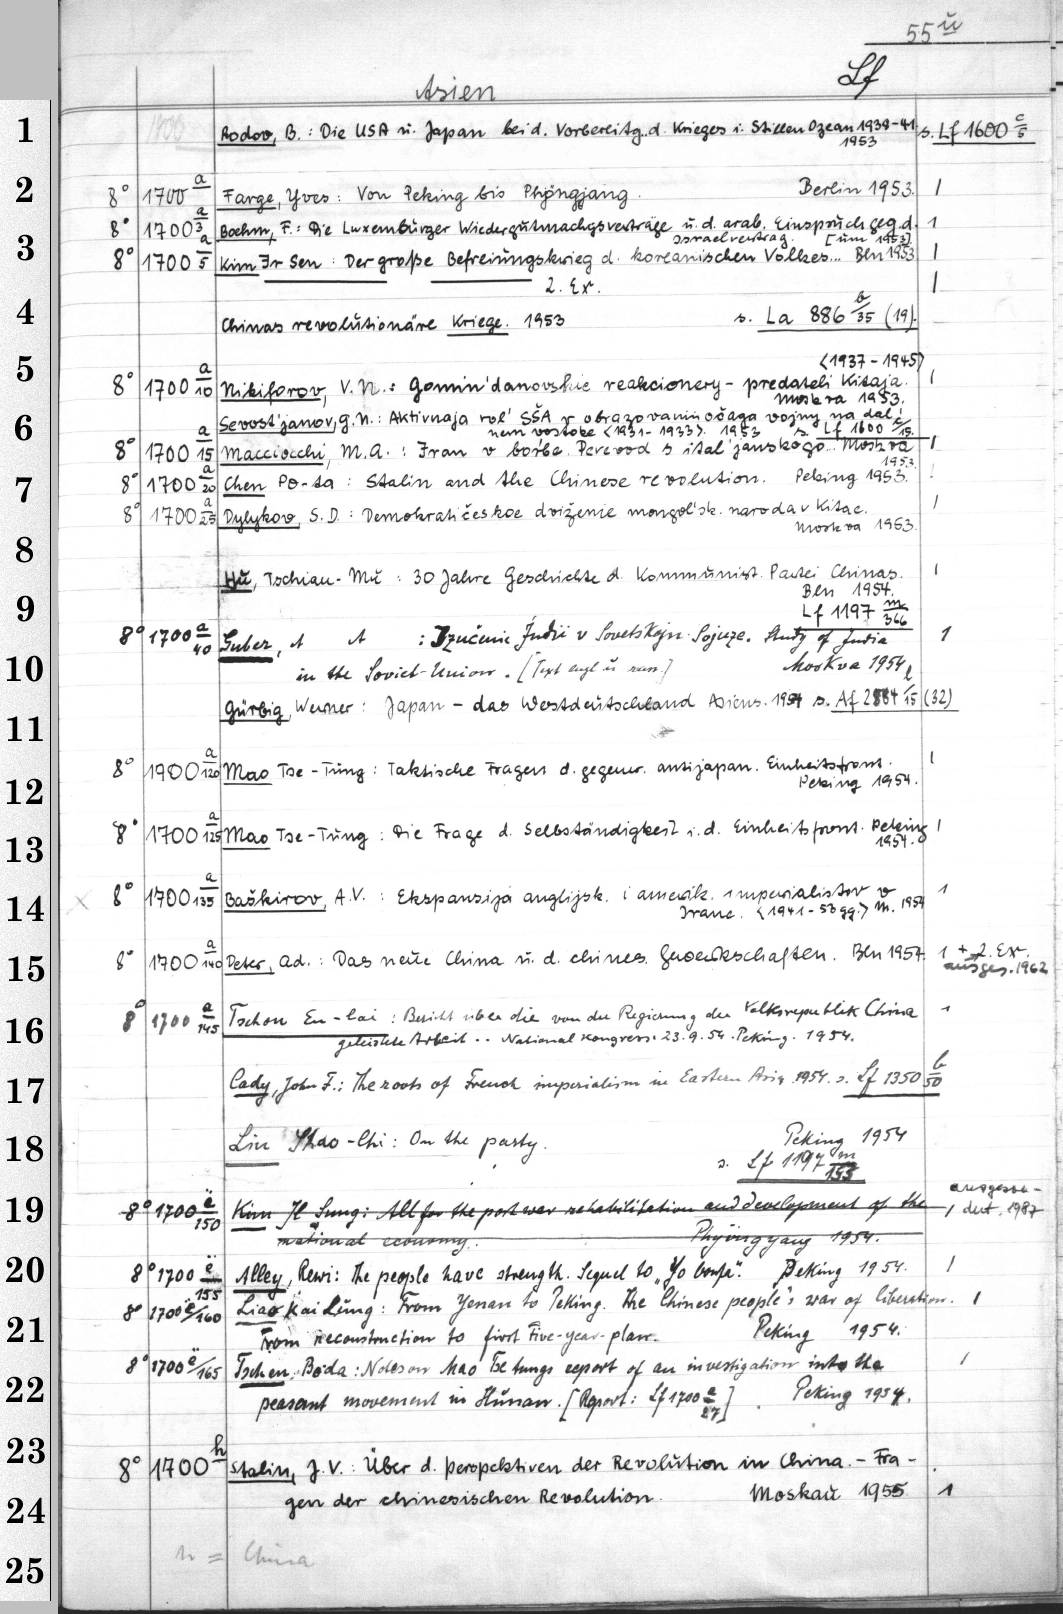 55 ü
Lf
Asien
1 Rodov, B.: Die USA u. Japan bei d. Vorbereitg. d. Krieges i. Stillen Ozean 1938-41 s. Lf 1600 c/5
1953
2 8° 1700 a Farge, Yves: Von Peking bis Phöngjang. Berlin 1953. 1
8° 1700 a/3 Boehm, F.: Die Luxemburger Wiedergutmachgsverträge u. d. arab. Einspruch geg. d. 1
Israelvertrag. [um 1953]
3 8° 1700 a/5 Kim Ir Sen: Der große Befreiungskrieg d. koreanischen Volkes... Bln 1953 1
2. Ex. 1
4 Chinas revolutionäre Kriege. 1953 s. La 886 b/35 (19).
5 <1937-1945>
8° 1700 a/10 Nikiforov, V.N.: Gomin'danovskie reakcionery - predateli Kitaja. 1
Moskva 1953.
6 Sevost'janov, G.N.: Aktivnaja rol' SŠA v obrazovanii očaga vojny na dal'
nem vostoke <1931-1933>. 1953 s. Lf 1600 c/15.
8° 1700 a/15 Macciocchi, M.A.: Iran v bor'be. Perevod s ital'janskogo. Moskva 1
1953.
7 8° 1700 a/20 Chen Po-ta: Stalin and the Chinese revolution. Peking 1953.
8° 1700 a/25 Dylykov, S.D.: Demokratičeskoe dviženie mongol'sk. naroda v Kitae. 1
Moskva 1953.
8 Hu, Tschiau-Mu: 30 Jahre Geschichte d. Kommunist. Partei Chinas. 1
Bln 1954.
9 Lf 1197 m/366
8° 1700 a/40 Guber, A A : Izučenie Indii v Sovetskom Sojuze. Study of India 1
10 in the Soviet-Union. [Text engl u russ.] Moskva 1954
Gürbig, Werner: Japan - das Westdeutschland Asiens. 1954 s. Af 2884 l/15 (32)
11
12 8° 1900 a/120 Mao Tse-Tung: Taktische Fragen d. gegenw. antijapan. Einheitsfront. 1
Peking 1954.
13 8° 1700 a/125 Mao Tse-Tung: Die Frage d. Selbständigkeit i. d. Einheitsfront. Peking 1
1954.
14 8° 1700 a/135 Baškirov, A.V.: Ekspansija anglijsk. i amerik. imperialistov v 1
Irane. <1941-53 gg.> M. 1954
15 8° 1700 a/140 Peter, Ad.: Das neue China u. d. chines. Gewerkschaften. Bln 1954. 1 + 2. Ex.
ausges. 1962
16 8° 1700 a/145 Tschou En-lai: Bericht über die von der Regierung der Volksrepublik China 1
geleistete Arbeit .. National kongress. 23.9.54. Peking. 1954.
17 Cady, John F.: The roots of French imperialism in Eastern Asia. 1954. s. Lf 1350 b/50
18 Liu Shao-Chi: On the party. Peking 1954
s. Lf 1197 m/153
19 8° 1700 ë/150 Kim Il Sung: All for the post war rehabilitation and development of the 1
national economy. Phyöngyang 1954.
20 8° 1700 ë/155 Alley, Rewi: The people have strength. Sequel to „Yo banfa". Peking 1954. 1
8° 1700 ë/160 Liao Kai Lung: From Yenan to Peking. The Chinese people's war of liberation. 1
21 From reconstruction to first Five-year-plan. Peking 1954.
8° 1700 ë/165 Tschen, Boda: Notes on Mao Tse tungs report of an investigation into the 1
22 peasant movement in Hunan. [Report: Lf 1700 a/27]. Peking 1954.
23 8° 1700 h Stalin, J.V.: Über d. Perspektiven der Revolution in China. - Fra-
24 gen der chinesischen Revolution. Moskau 1955 1
25 h = China